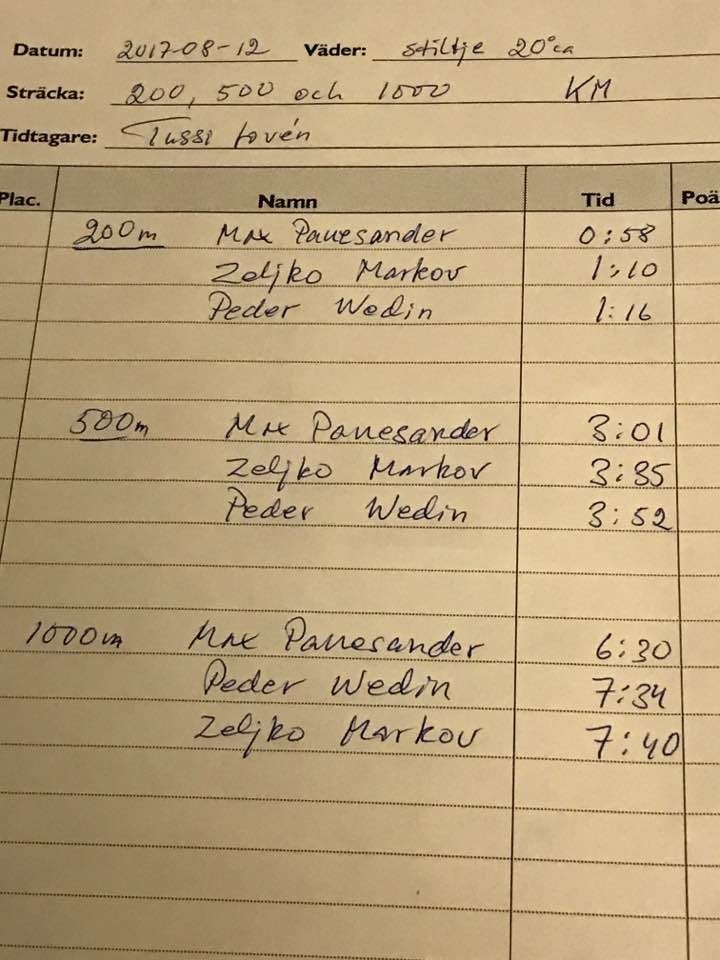 Datum: 2017-08-12 Väder: stiltje 20° ca
Sträcka: 200, 500 och 1000 KM
Tidtagare: Tussi Lovén
Plac. Namn Tid Poä
200m Max Panesander 0:58
Zeljko Markov 1:10
Peder Wedin 1:16
500m Max Panesander 3:01
Zeljko Markov 3:35
Peder Wedin 3:52
1000m Max Panesander 6:30
Peder Wedin 7:34
Zeljko Markov 7:40